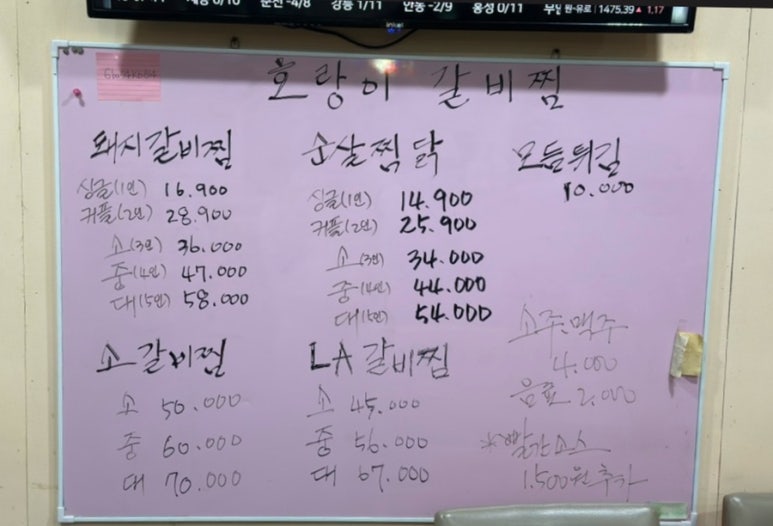 순천 -4/8 강릉 1/11 안동 -2/9 홍성 0/11
원-유로 1475.39▲ 1.17
호랑이 갈비찜
돼지갈비찜
싱글(1인) 16.900
커플(2인) 28.900
소(3인) 36.000
중(4인) 47.000
대(5인) 58.000
순살찜닭
싱글(1인) 14.900
커플(2인) 25.900
소(3인) 34.000
중(4인) 44.000
대(5인) 54.000
모듬튀김
10.000
소갈비찜
소 50.000
중 60.000
대 70.000
LA갈비찜
소 45.000
중 56.000
대 67.000
소주.맥주
4.000
음료 2.000
*빨간소스
1.500원추가